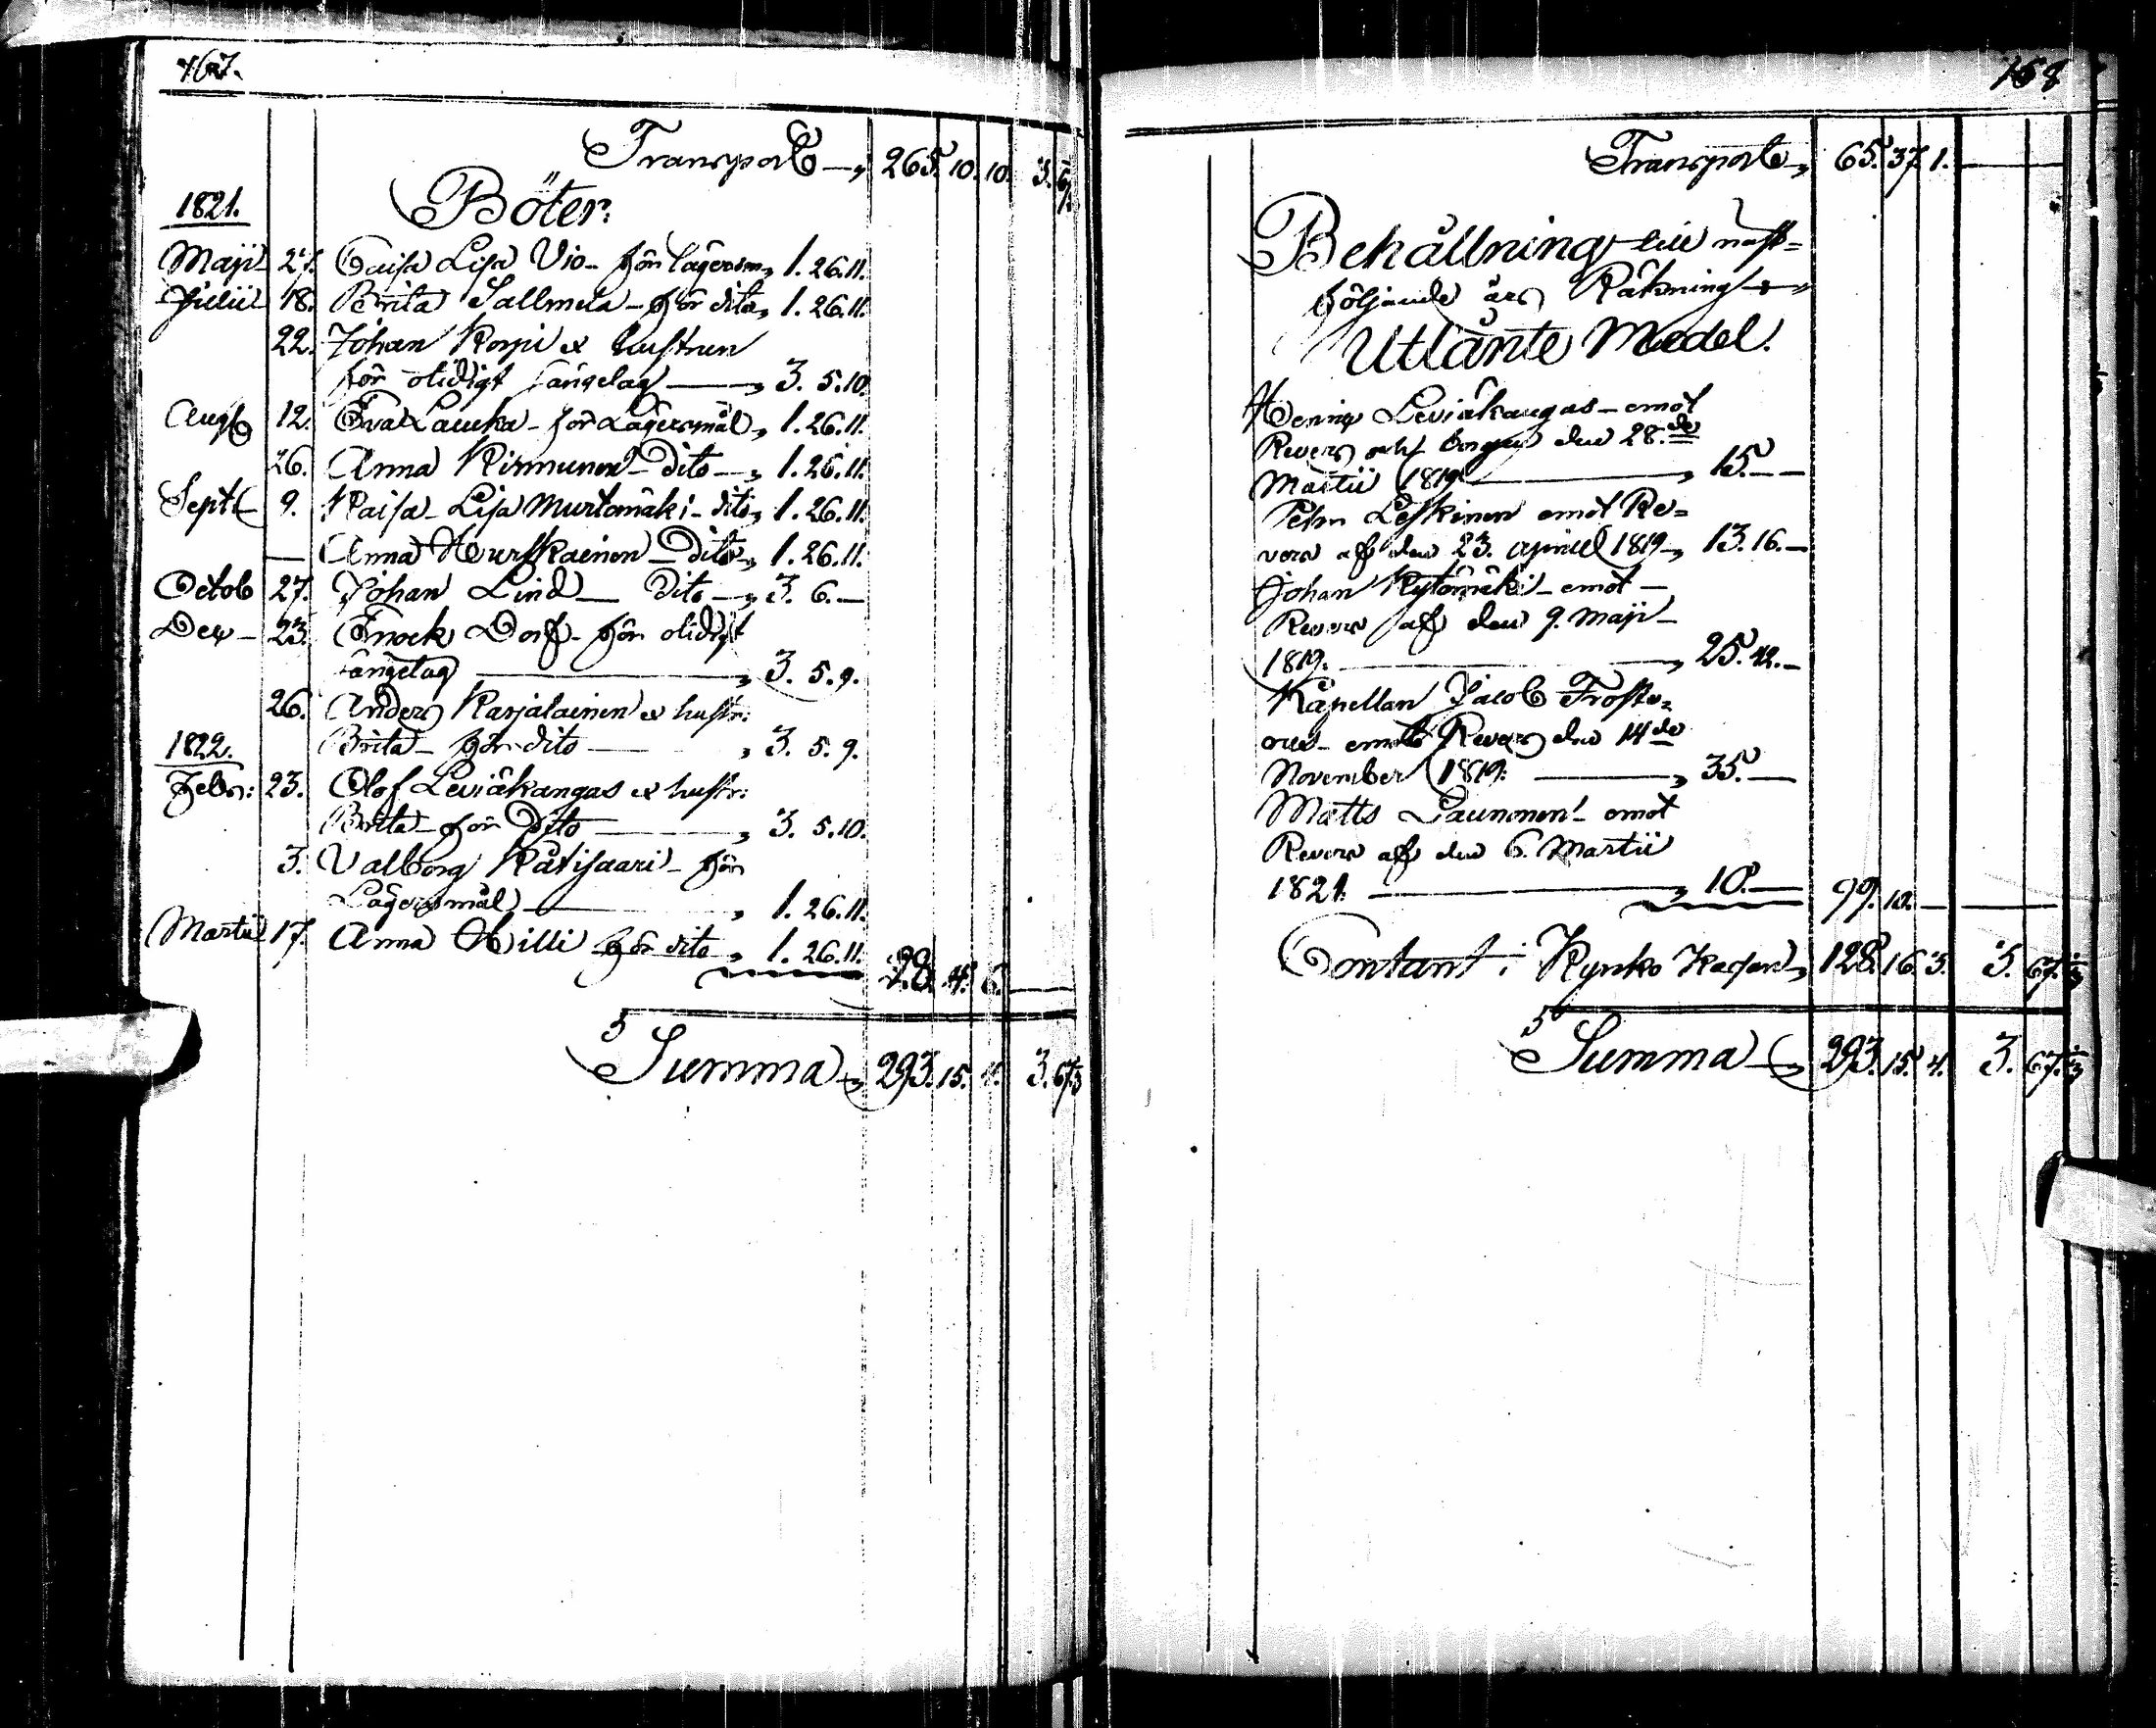 167.
Transport — 265. 10. 10. 3. 67
Böter.
1821.
Maji 27. Caisa Lisa Vio — för lägersm. 1. 26. 11.
Julii 18. Brita Sallmela — för dito, 1. 26. 11.
22. Johan Korpi & hustrun
för otidigt sängelag — 3. 5. 10.
Aug. 12. Eva Laucka — för Lägersmål, 1. 26. 11.
26. Anna Kinnunen — dito — 1. 26. 11.
Sept. 9. Kaisa Lisa Murtomäki — dito, 1. 26. 11.
— Anna Hurskainen — dito, 1. 26. 11.
Octob 27. Johan Lind — dito — 3. 6. —
Dec. 23. Enock Dorf — för otidigt
sängelag — 3. 5. 9.
26. Anders Karjalainen & hustr:
Brita — för dito — 3. 5. 9.
1822.
Febr: 23. Olof Leviäkangas & hustr:
Brita — för Dito — 3. 5. 10.
3. Valborg Kätisaari — för
Lägersmål — 1. 26. 11.
Martii 17. Anna Hilli för dito, 1. 26. 11. 28. 4. 6.
Summa — 293. 15. 4. 3. 67 1/3
168
Transport, 65. 37. 1. —
Behållning till näst=
följande års Räkning
Utlånte Medel.
Leviäkangas — emot
Revers och borgen den 28.de
Martii 1819 — 15. —
Pehr Leskinen emot Re=
vers af den 23. april 1819 — 13. 16. —
Johan Kytömäki — emot —
Revers af den 9. Maji —
1819. — 25. 42. —
Kapellan Jacob Froste=
rus — emot Revers den 14de
November 1819: — 35. —
Matts Launonen — emot
Revers af den 6. Martii
1821. — 10. — 99. 10. —
Contant i Kyrko Kassan, 128. 16. 3. 3. 67. 1/3
Summa — 293. 15. 4. 3. 67. 1/3